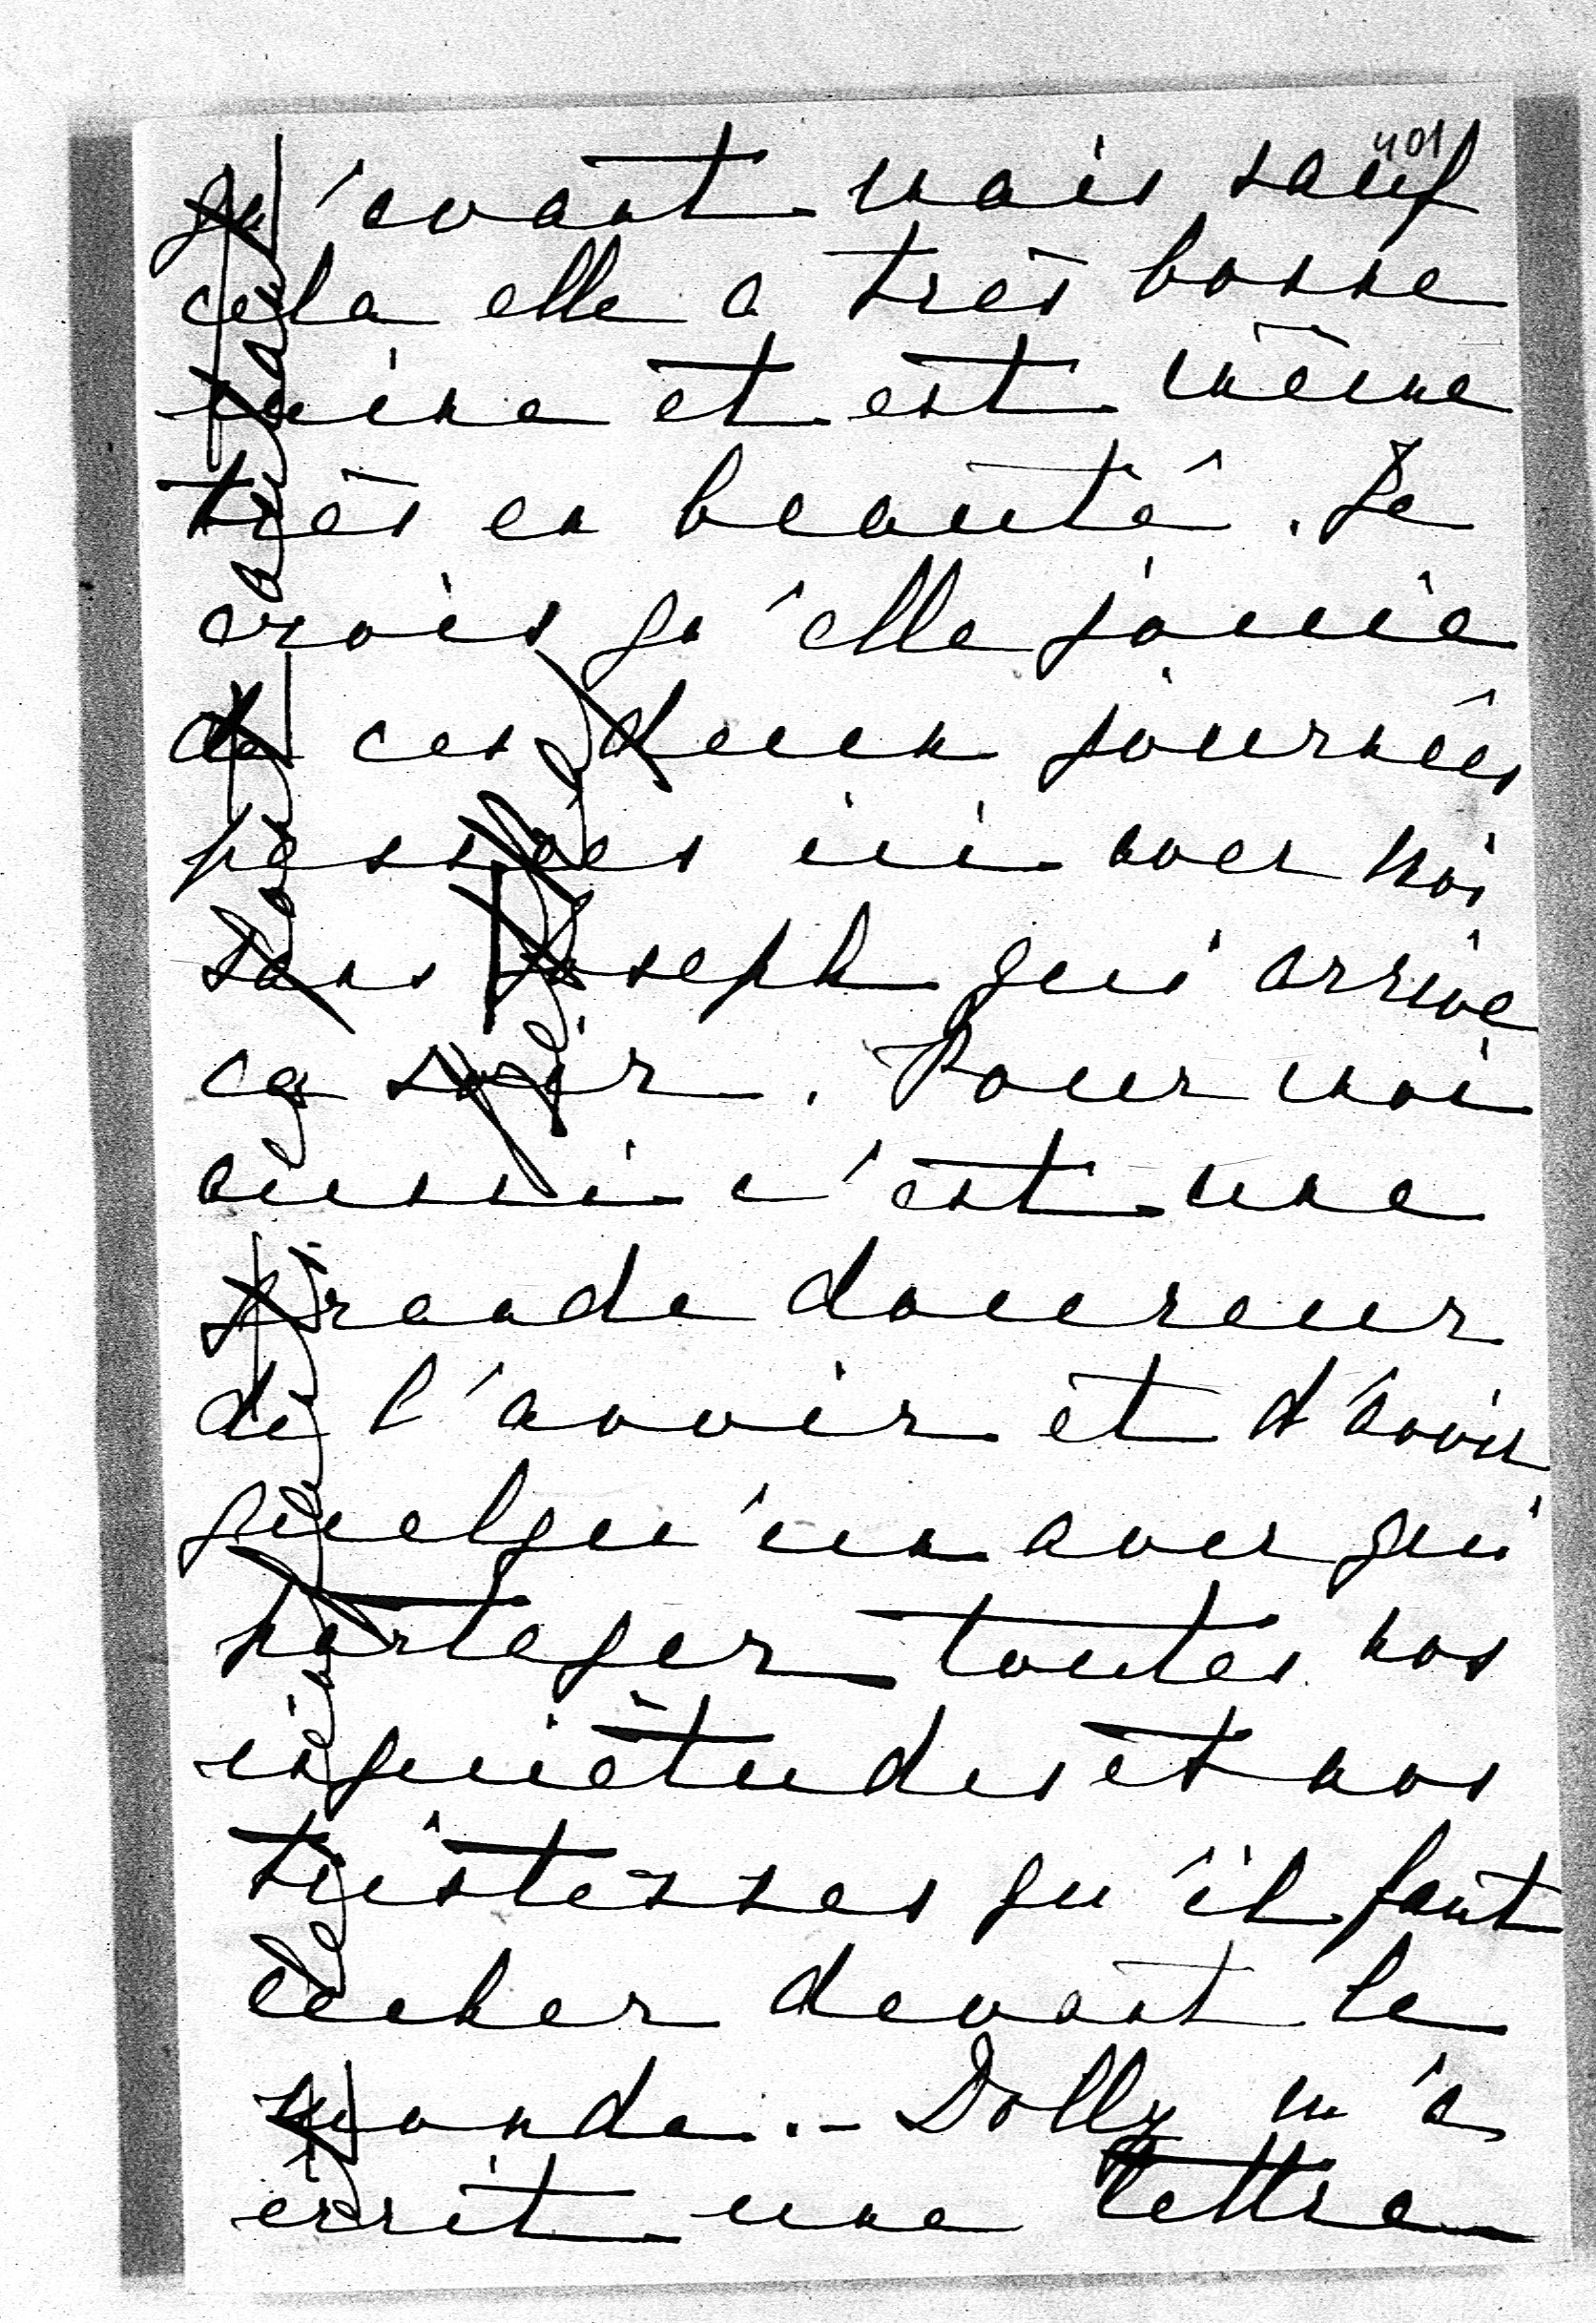 401
qu'avant mais sauf
cela elle a très bonne
mine et est même
très en beauté. Je
crois qu'elle jouie
de ces deux journées
passées ici avec moi
sans Joseph qui arrive
ce soir. Pour moi
aussi c'est une
grande douceur
de l'avoir et d'avoir
quelqu'un avec qui
partager toutes nos
inquiètudes et nos
tristesses qu'il faut
cacher devant le
monde.- Dolly m'a
écrit une lettre